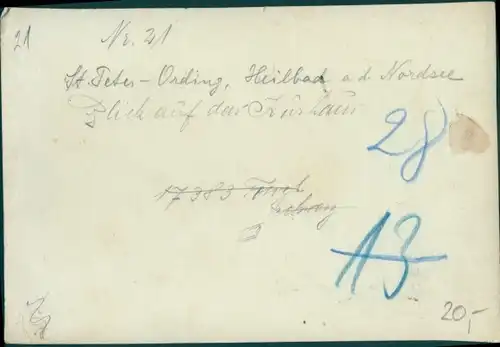 21
Nr. 21
St. Peter-Ording, Heilbad a. d. Nordsee
Blick auf das Kurhaus
28
17383
13
20,-